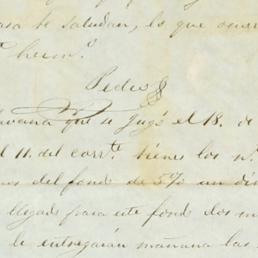 se saludan, lo que
herm.º
Pedro
que se jugó el 18. de
el 11. del corr.te tienes los n.º
del fondo de 5% un
llegado para este fond los
le entregarán mañana las